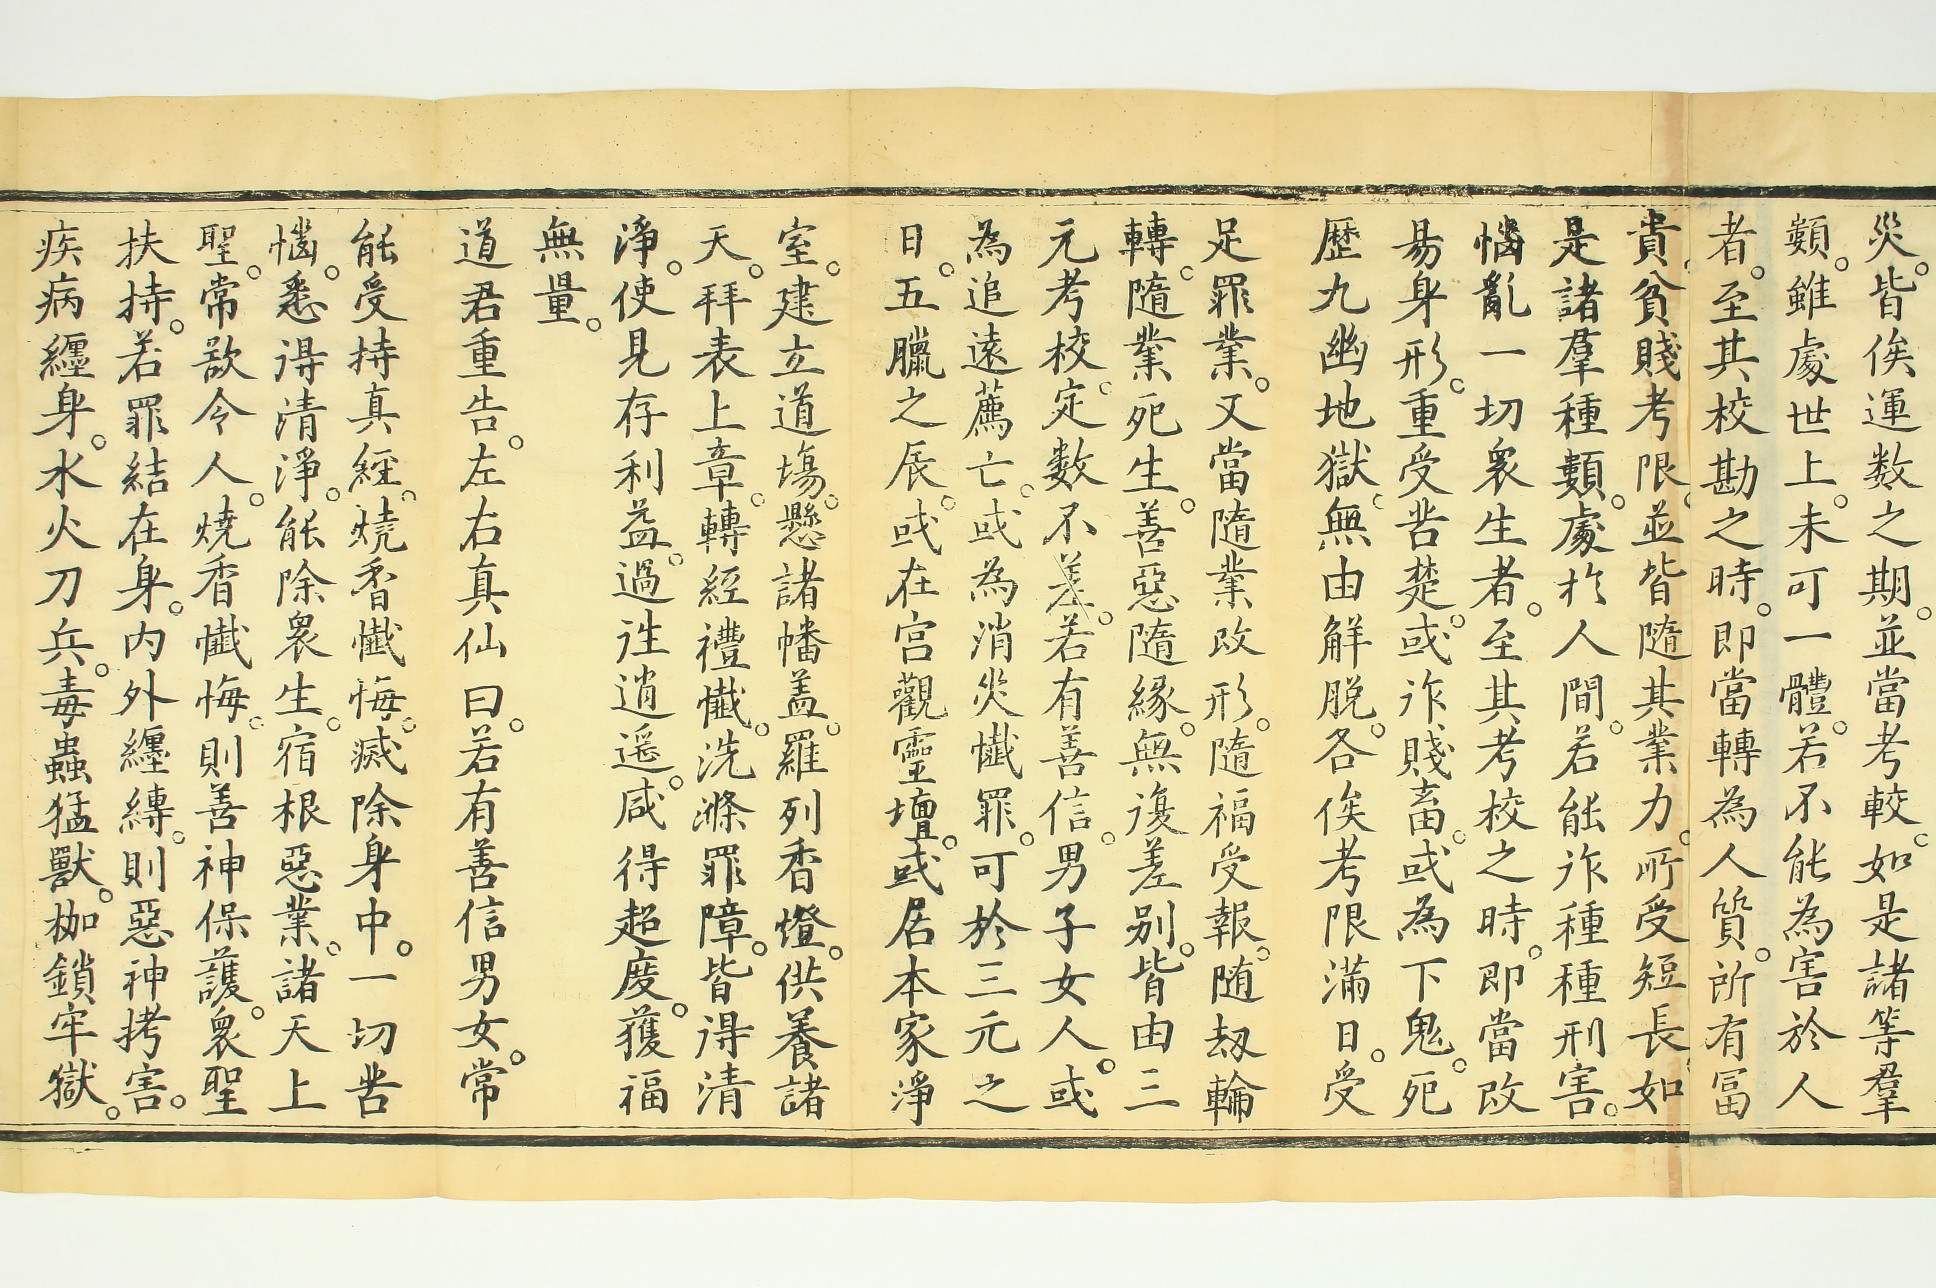 災。皆俟運数之期。並當考較。如是諸等羣
類。雖處世上。未可一體。若不能為害於人
者。至其校勘之時。即當轉為人質。所有冨
貴貧賤考限。並皆隨其業力。所受短長。如
是諸羣種類。處扵人間。若能作種種刑害。
惱亂一切衆生者。至其考校之時。即當改
易身形。重受苦楚。或作賤畜。或為下鬼。死
歷九幽地獄。無由解脫。各俟考限滿日。受
足罪業。又當隨業改形。隨福受報。随刼輪
轉。隨業死生。善惡隨緣。無復差别。皆由三
元考校。定数不差。若有善信。男子女人。或
為追遠薦亡。或為消災懺罪。可於三元之
日。五臘之辰。或在宫觀靈壇。或居本家淨
室。建立道塲。懸諸幡盖。羅列香燈。供養諸
天。拜表上章。轉經禮懺。洗滌罪障。皆得清
淨。使見存利益。過往逍遥。咸得超度。獲福
無量。
道君重告。左右真仙曰。若有善信男女。常
能受持真經。燒香懺悔。滅除身中。一切苦
惱。悉得清淨。能除衆生。宿根惡業。諸天上
聖。常敬令人。燒香懺悔。則善神保護。衆聖
扶持。若罪結在身。内外纏縛。則惡神拷害。
疾病纒身。水火刀兵。毒蟲猛獸。枷鎖牢獄。